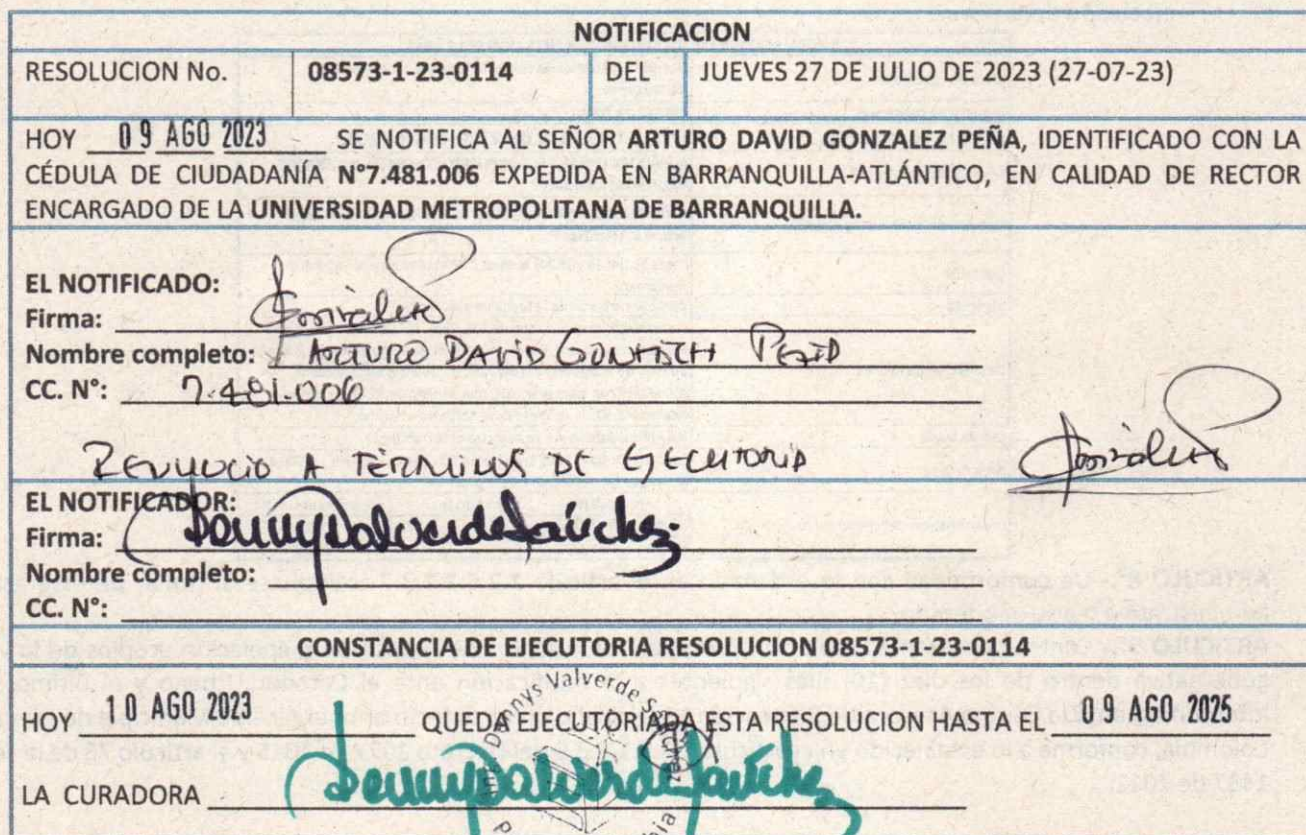 NOTIFICACION
RESOLUCION No. 08573-1-23-0114 DEL JUEVES 27 DE JULIO DE 2023 (27-07-23)
HOY 09 AGO 2023 SE NOTIFICA AL SEÑOR ARTURO DAVID GONZALEZ PEÑA, IDENTIFICADO CON LA
CÉDULA DE CIUDADANÍA N°7.481.006 EXPEDIDA EN BARRANQUILLA-ATLÁNTICO, EN CALIDAD DE RECTOR
ENCARGADO DE LA UNIVERSIDAD METROPOLITANA DE BARRANQUILLA.
EL NOTIFICADO:
Firma: González
Nombre completo: ARTURO DAVID
CC. N°: 7.481.006
RENUNCIO A TÉRMINOS DE EJECUTORIA González
EL NOTIFICADOR:
Firma: Denny Valverde Sánchez
Nombre completo:
CC. N°:
CONSTANCIA DE EJECUTORIA RESOLUCION 08573-1-23-0114
HOY 10 AGO 2023 QUEDA EJECUTORIADA ESTA RESOLUCION HASTA EL 09 AGO 2025
LA CURADORA Denny Valverde Sánchez
Denys Valverde